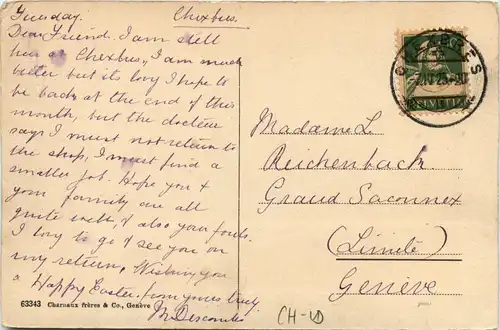 Tuesday. Chexbres.
Dear Friend. I am still
here at Chexbres, I am much
better but its long I hope to
be back at the end of this
month, but the docteur
says I must not return to
the shop, I must find a
smaller job. Hope you &
your family are all
quite well, & also your
I long to go & see you on
my return, Wishing you
a Happy Easter. from yours truly
M. Descombes
63343 Charnaux frères & Co., Genève
CHEXBRES
HELVETIA
Madame L
Reichenback
Grand Saconnex
(Limité)
Genève
CH-VD